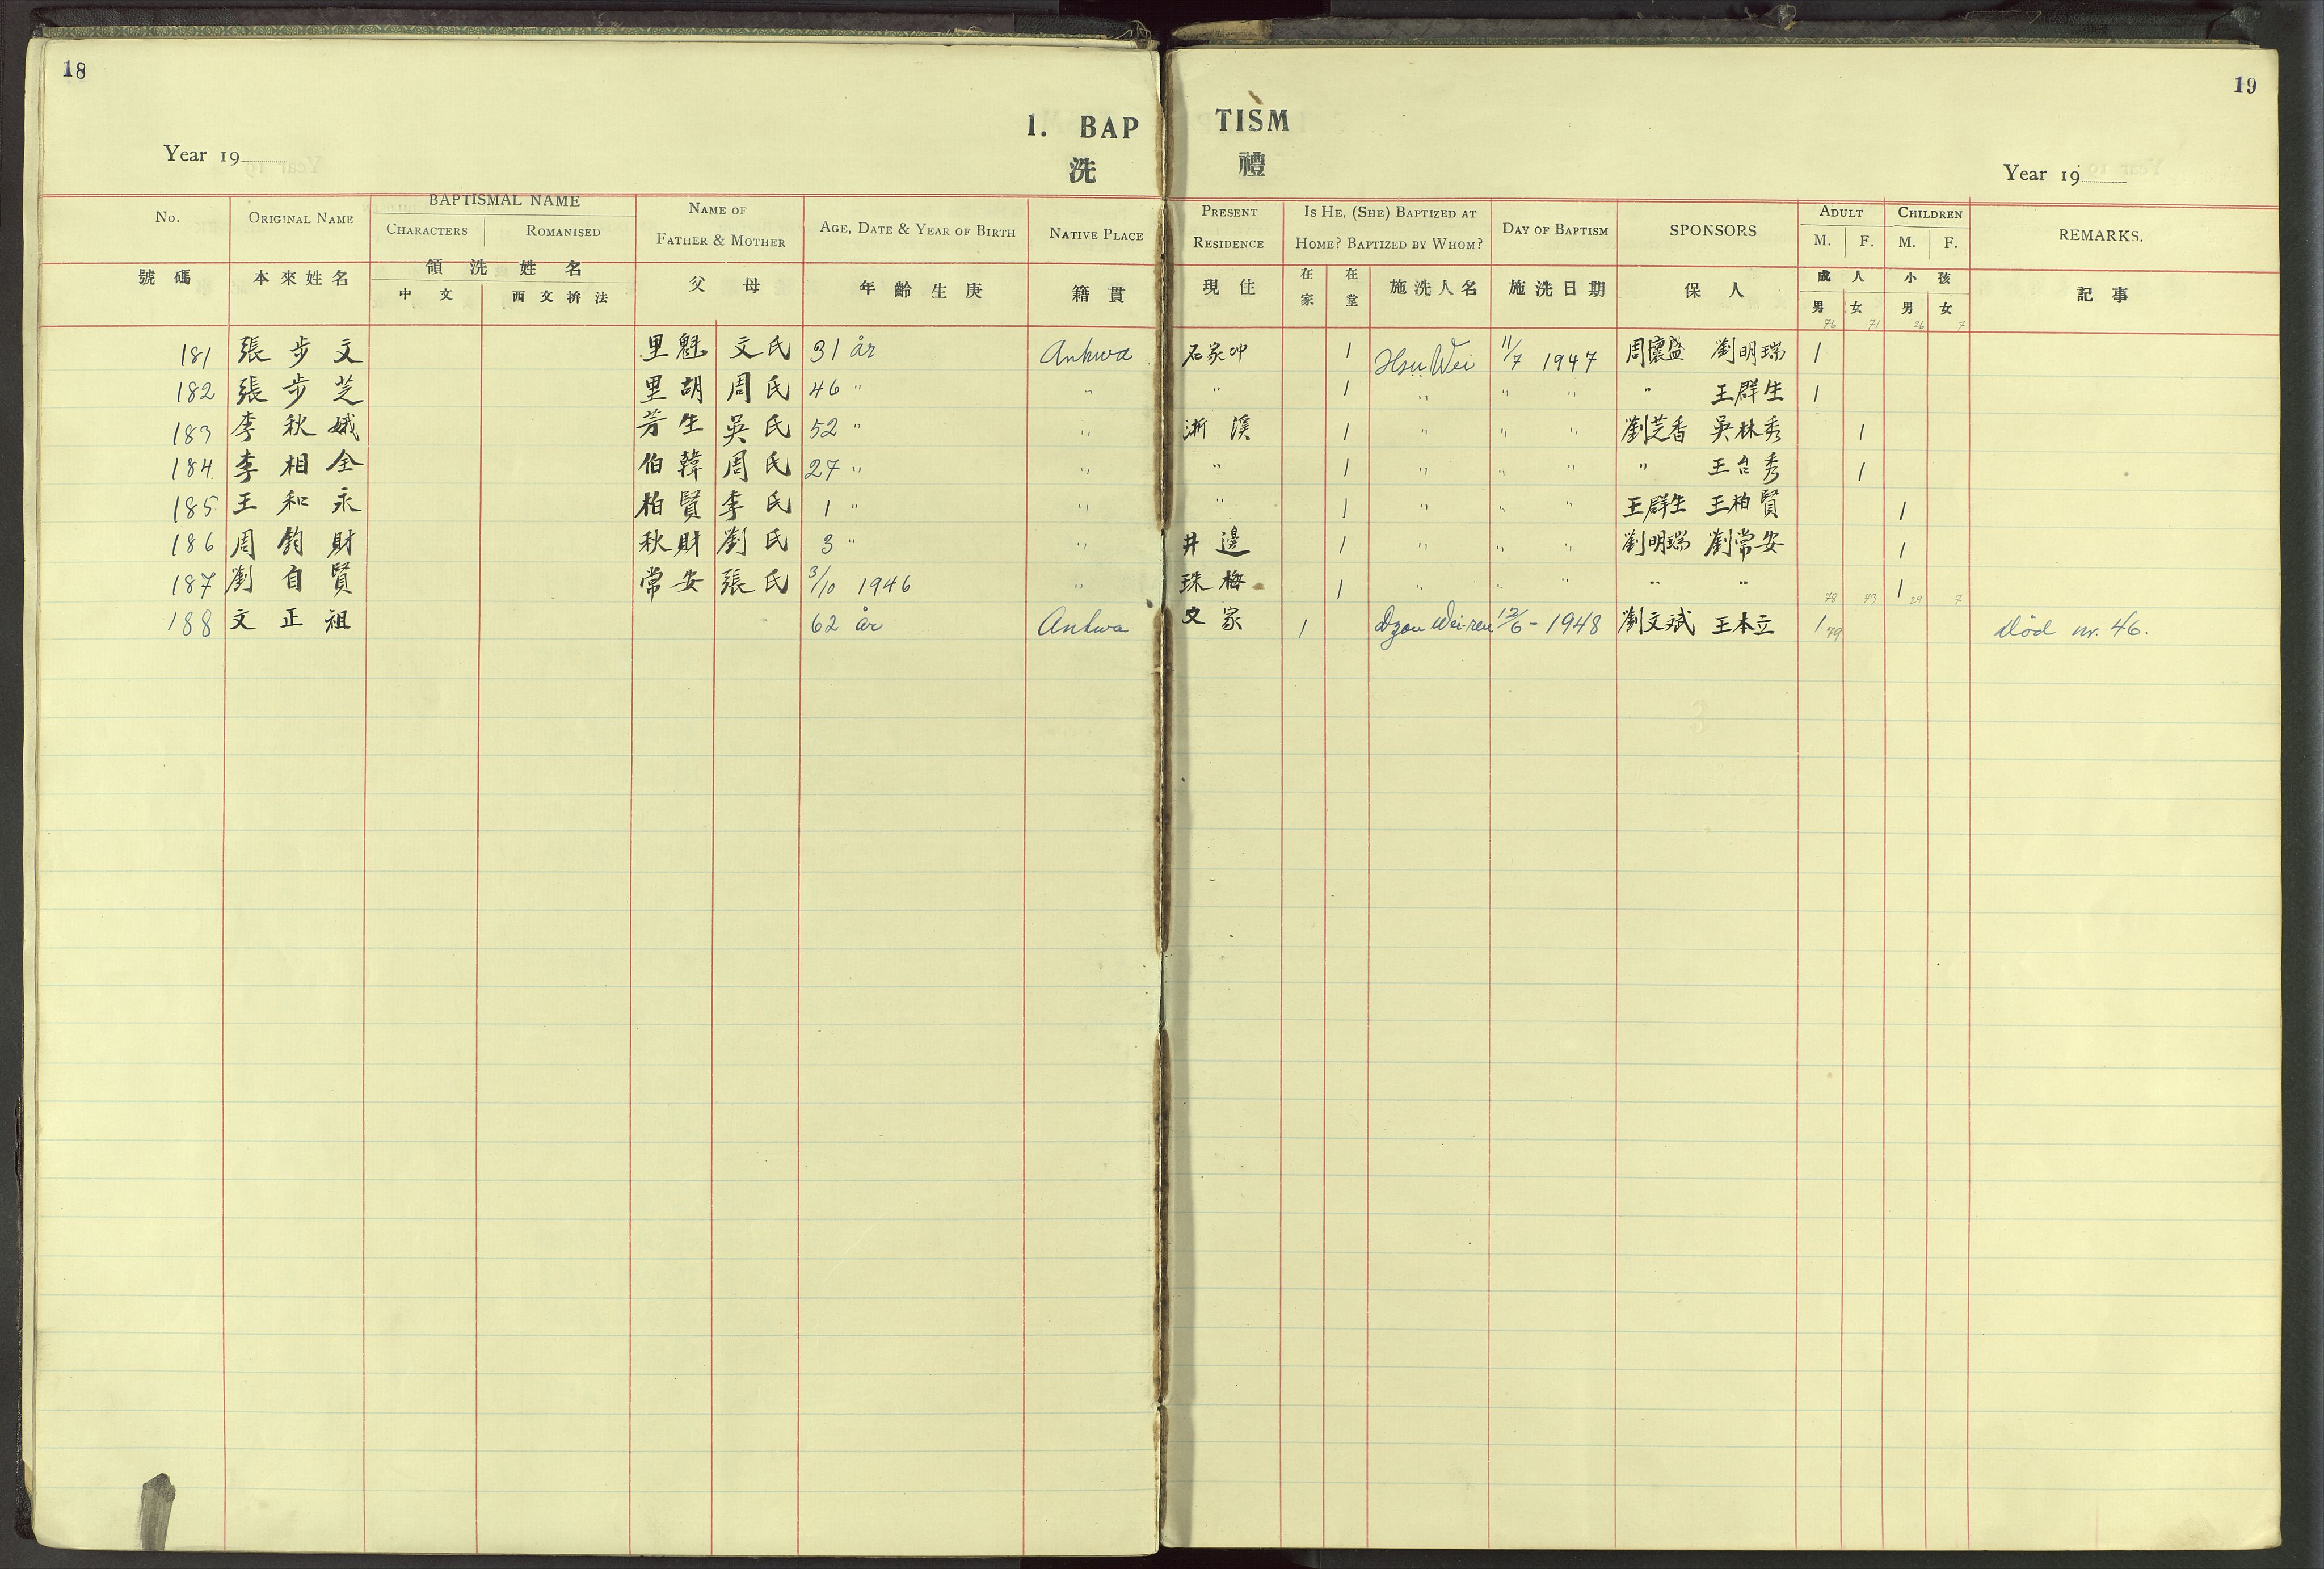 18
19
1. BAP TISM
洗 禮
Year 19
Year 19
No. ORIGINAL NAME BAPTISMAL NAME CHARACTERS ROMANISED NAME OF FATHER & MOTHER AGE, DATE & YEAR OF BIRTH NATIVE PLACE PRESENT RESIDENCE IS HE, (SHE) BAPTIZED AT HOME? BAPTIZED BY WHOM? DAY OF BAPTISM SPONSORS ADULT M. F. CHILDREN M. F. REMARKS.
號碼 本來姓名 領洗姓名 中文 西文拚法 父母 年齡生庚 籍貫 現住 在家 在堂 施洗人名 施洗日期 保人 成人 男 女 小孩 男 女 記事
76 71 26 7
181 張步文 里魁 文氏 31 år Ankwa 石家冲 1 Hsu Wei 11/7 1947 周懷盛 劉明瑞 1
182 張步芝 里胡 周氏 46 " " " 1 " " " " 王群生 1
183 李秋娥 芳生 吳氏 52 " " 淅溪 1 " " " 劉芝香 吳林秀 1
184 李相全 伯韓 周氏 27 " " " 1 " " " " 王台秀 1
185 王和永 柏賢 李氏 1 " " " 1 " " " 王群生 王柏賢 1
186 周鈞財 秋財 劉氏 3 " " 井邊 1 " " " 劉明瑞 劉常安 1
187 劉自賢 常安 張氏 3/10 1946 " 珠梅 1 " " " " " 78 73 1 29 7
188 文正祖 62 år Ankwa 文家 1 Dzou Wei-ren 12/6 - 1948 劉文斌 王本立 1 79 Död nr. 46.